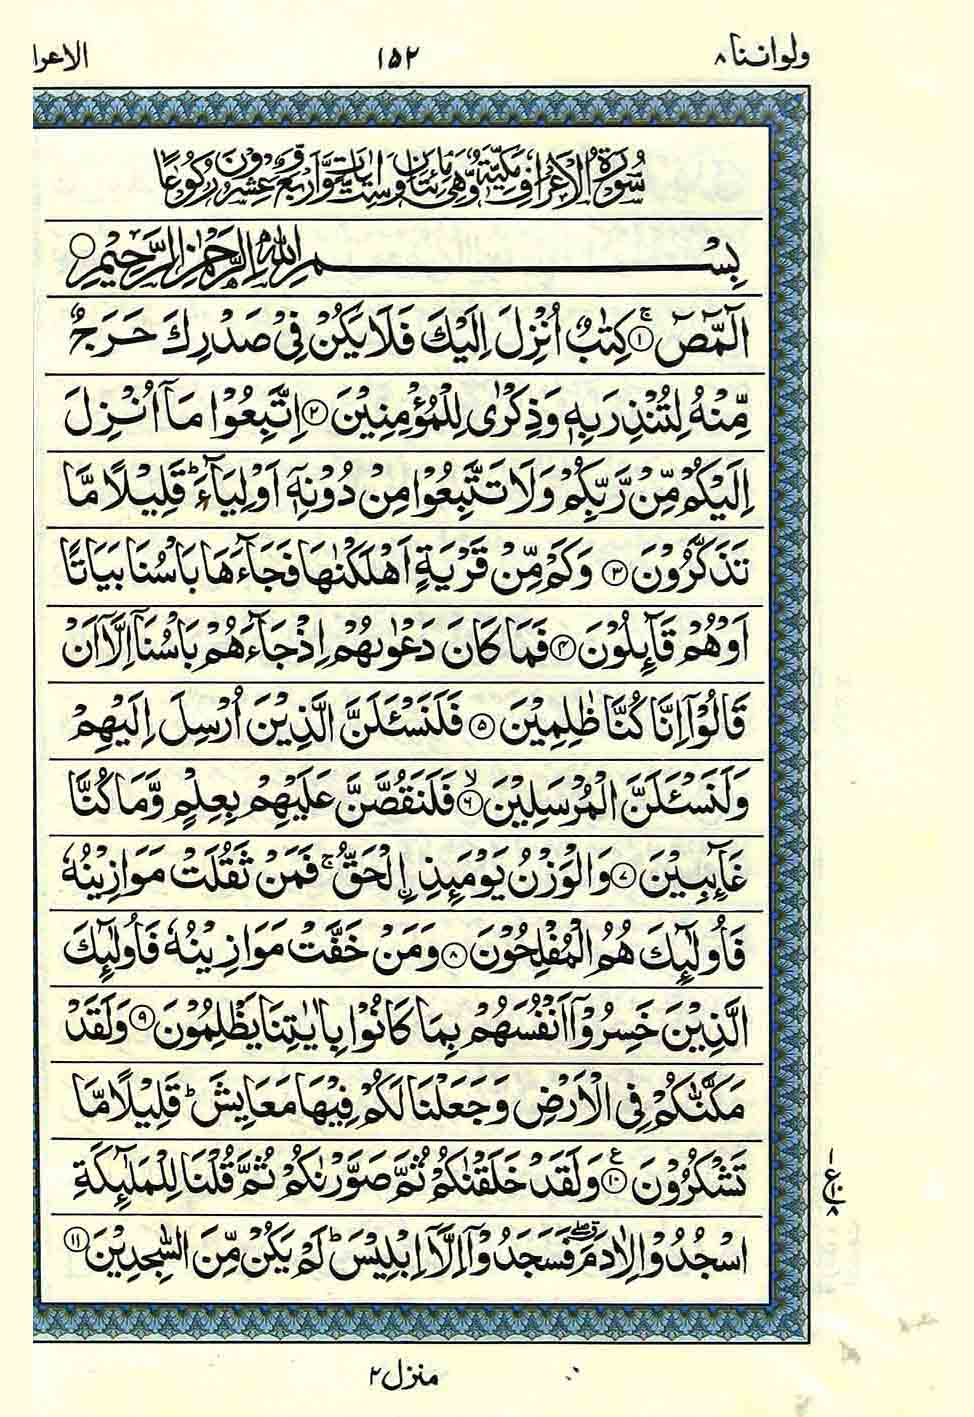 ولواننا ۸ ۱۵۲ الاعرا
سُوْرَةُ الْاَعْرَافِ مَكِّيَّةٌ وَّهِىَ مِائَتَانِ وَسِتُّ اٰيَاتٍ وَّاَرْبَعٌ وَّعِشْرُوْنَ رُكُوْعًا
بِسْمِ اللّٰهِ الرَّحْمٰنِ الرَّحِيْمِ ○
الٓمّٓصٓ ۚ‏ ۱ كِتٰبٌ اُنْزِلَ اِلَيْكَ فَلَا يَكُنْ فِىْ صَدْرِكَ حَرَجٌ
مِّنْهُ لِتُنْذِرَ بِهٖ وَذِكْرٰى لِلْمُؤْمِنِيْنَ ۲ اِتَّبِعُوْا مَاۤ اُنْزِلَ
اِلَيْكُمْ مِّنْ رَّبِّكُمْ وَلَا تَتَّبِعُوْا مِنْ دُوْنِهٖۤ اَوْلِيَآءَ ؕ قَلِيْلًا مَّا
تَذَكَّرُوْنَ ۳ وَكَمْ مِّنْ قَرْيَةٍ اَهْلَكْنٰهَا فَجَآءَهَا بَاْسُنَا بَيَاتًا
اَوْ هُمْ قَآئِلُوْنَ ۴ فَمَا كَانَ دَعْوٰىهُمْ اِذْ جَآءَهُمْ بَاْسُنَاۤ اِلَّاۤ اَنْ
قَالُوْۤا اِنَّا كُنَّا ظٰلِمِيْنَ ۵ فَلَنَسْئَلَنَّ الَّذِيْنَ اُرْسِلَ اِلَيْهِمْ
وَلَنَسْئَلَنَّ الْمُرْسَلِيْنَ ۙ ۶ فَلَنَقُصَّنَّ عَلَيْهِمْ بِعِلْمٍ وَّمَا كُنَّا
غَآئِبِيْنَ ۷ وَالْوَزْنُ يَوْمَئِذِ ِۨالْحَقُّ ۚ فَمَنْ ثَقُلَتْ مَوَازِيْنُهٗ
فَاُولٰٓئِكَ هُمُ الْمُفْلِحُوْنَ ۸ وَمَنْ خَفَّتْ مَوَازِيْنُهٗ فَاُولٰٓئِكَ
الَّذِيْنَ خَسِرُوْۤا اَنْفُسَهُمْ بِمَا كَانُوْا بِاٰيٰتِنَا يَظْلِمُوْنَ ۹ وَلَقَدْ
مَكَّنّٰكُمْ فِى الْاَرْضِ وَجَعَلْنَا لَكُمْ فِيْهَا مَعَايِشَ ؕ قَلِيْلًا مَّا
تَشْكُرُوْنَ ۱۰ ع وَلَقَدْ خَلَقْنٰكُمْ ثُمَّ صَوَّرْنٰكُمْ ثُمَّ قُلْنَا لِلْمَلٰٓئِكَةِ
۱ ع ۱۰ ۸
اسْجُدُوْا لِاٰدَمَ ۖ فَسَجَدُوْۤا اِلَّاۤ اِبْلِيْسَ ؕ لَمْ يَكُنْ مِّنَ السّٰجِدِيْنَ ۱۱
منزل ۲